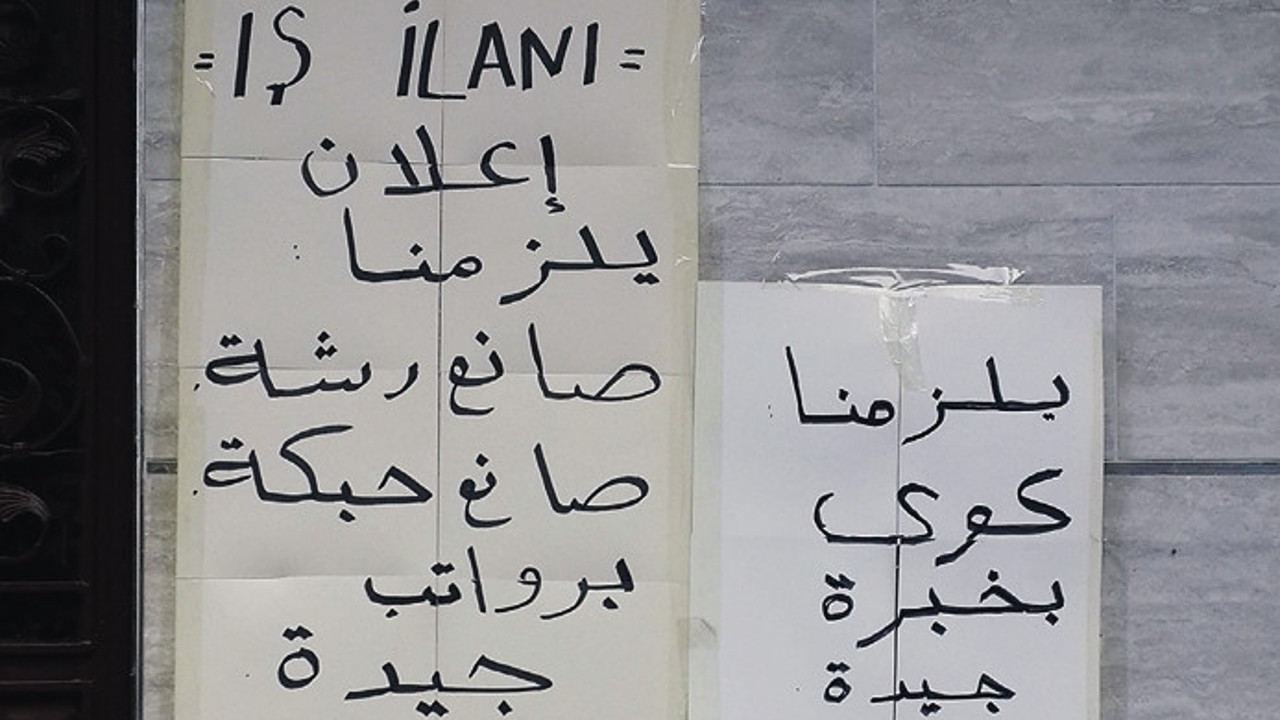 =IŞ İLANI=
إعلان
يلزمنا :
صانع رشة.
صانع حبكة.
برواتب
جيدة
يلزمنا :
كوى
بخبرة
جيدة.